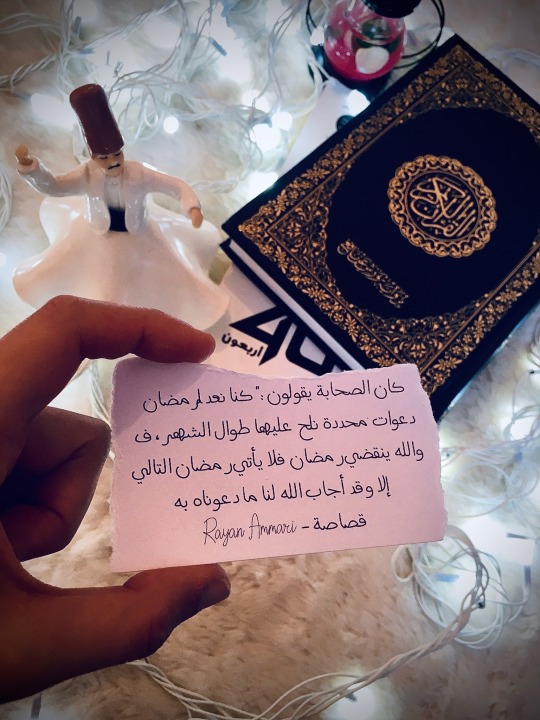 القرآن الكريم
40
اربعون
كان الصحابة يقولون :" كنا نعد لرمضان
دعوات محددة نلح عليها طوال الشهر ، ف
والله ينقضي رمضان فلا يأتي رمضان التالي
إلا وقد أجاب الله لنا ما دعوناه به
قصاصة - Rayan Ammari